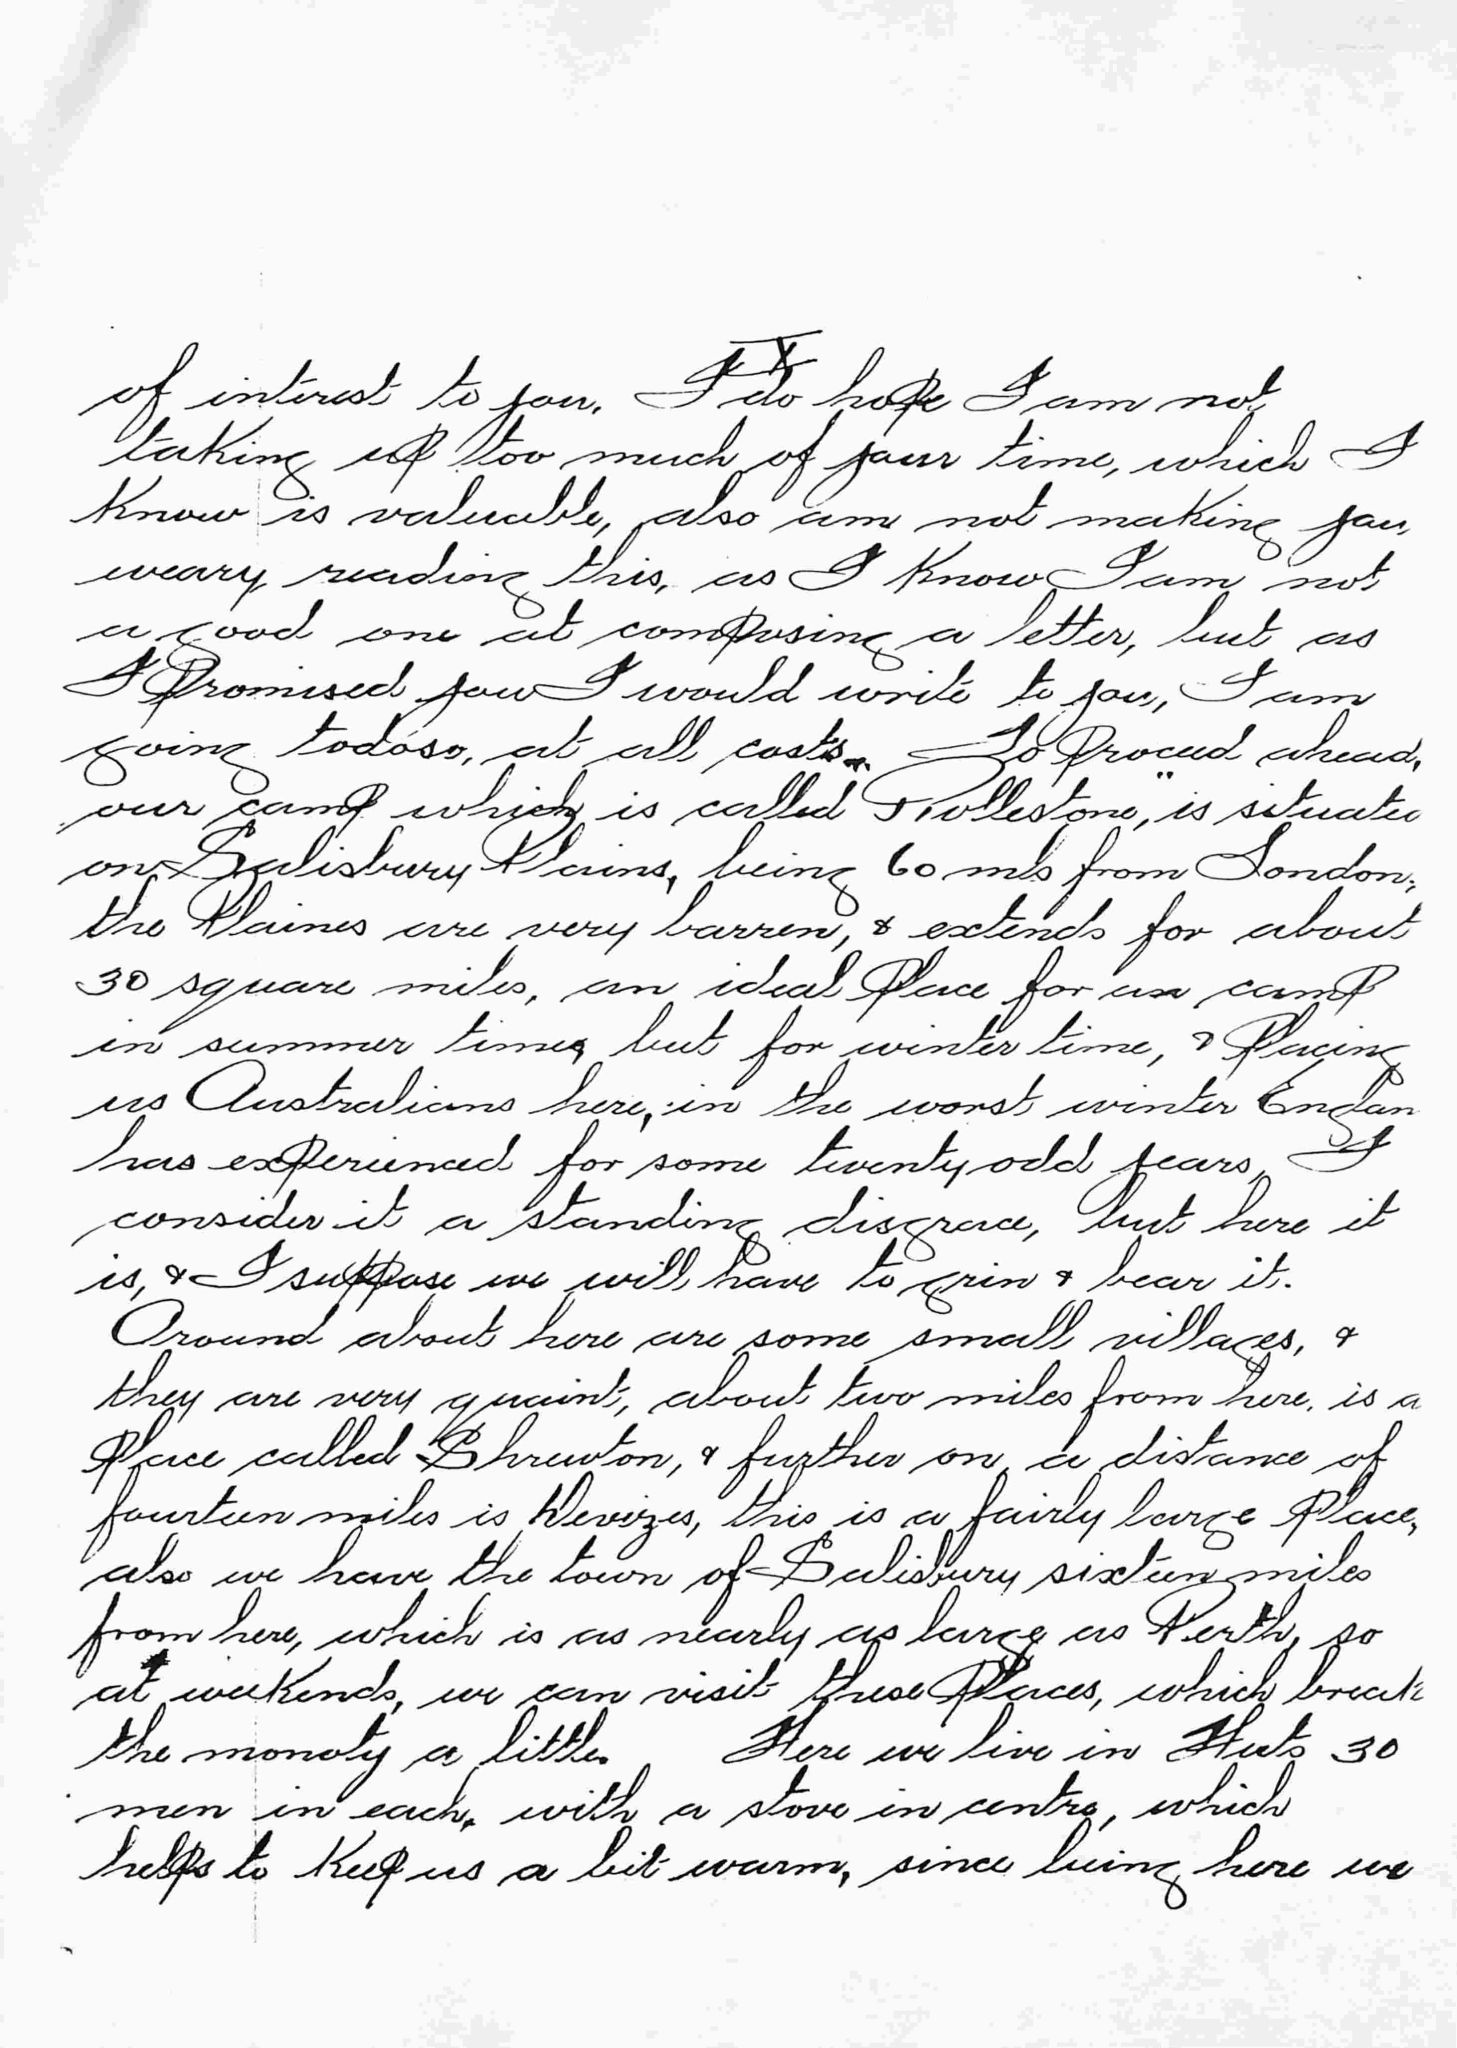 X
of interest to you. I do hope I am not
taking up too much of your time, which I
know is valuable, also am not making you
weary reading this, as I know I am not
a good one at composing a letter, but as
I promised you I would write to you, I am
going todoso, at all costs. To proceed ahead,
our camp which is called Rollestone," is situated
on Salisbury Plains, being 60 mls from London,
the Plaines are very barren, & extends for about
30 square miles, an ideal place for a camp
in summer time, but for winter time, & placing
us Australians here, in the worst winter Englan
has experienced for some twenty odd years, I
consider it a standing disgrace, but here it
is, & I suppose we will have to grin & bear it.
Around about here are some small villages, &
they are very quaint, about two miles from here, is a
place called Shrewton, & further on, a distance of
fourteen miles is Devizes, this is a fairly large place,
also we have the town of Salisbury sixteen miles
from here, which is as nearly as large as Perth, so
at weekends, we can visit these places, which break
the monoty a little. Here we live in Huts 30
men in each, with a stove in centre, which
helps to keep us a bit warm, since being here we